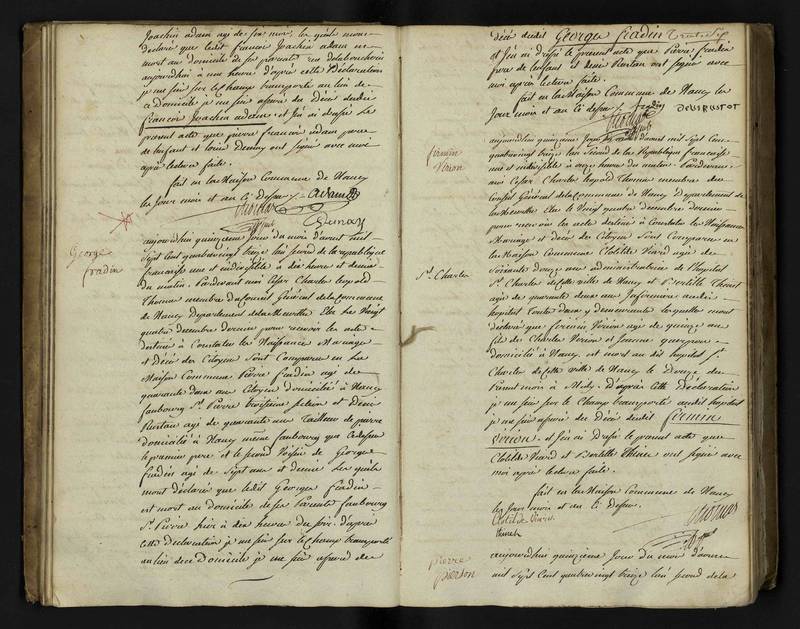 Joachim adam agé de six mois, lesquels m'ont
declaré que ledit francois Joachim adam est
mort au domicile de ses parents rue
aujourdhui à une heure d'après cette Déclaration
je me suis sur le champ transporté au lieu de
ce Domicile je me suis assuré du Décès dudit
francois Joachim adam. et j'en ai dressé le
present acte que pierre francois adam pere
de l'enfant et louis Demay ont signé avec moi
après lecture faite.
fait en la Maison Commune de Nancy
les Jour mois et an cy Dessus adam
Thomas
Demay
George
fradin
aujourdhuy quinzieme Jour du mois d'avril mil
sept Cent quatrevingt treize l'an second de la republique
francaise une et indivisible à dix heure et demie
du matin. Pardevant moi César Charles leopold
Thomas membre du Conseil Général de la Commune
de Nancy Departement de la Meurthe Elu Le Vingt
quatre Decembre dernier pour recevoir les actes
destinés à Constater les Naissance Mariage
et Décès des Citoyens Sont Comparus en La
Maison Commune Pierre fradin agé de
quarante deux ans Citoyen Domicilié à Nancy
faubourg St. Pierre troisieme section et Denis
Rustau agé de quarante ans Tailleur de pierre
domicilié à Nancy même faubourg que Cidessus
le premier pere et le second Voisin de George
fradin agé de Sept ans et demie lesquels
m'ont déclaré que ledit Georges fradin
est mort au domicile de ses Parents faubourg
St. Pierre hier à dix heures du soir. d'après
cette Déclaration je me suis sur le champ transporté
au lieu de ce Domicile je me suis assuré du
décès dudit George fradin
et j'en ai dressé le présent acte que Pierre fradin
pere de l'enfant et denis Rustau ont signé avec
moi après lecture faite.
fait en la Maison Commune de Nancy les
Jour mois et an Cy dessus fradin
Thomas
fermin
Virion
aujourdhuy quinzieme Jour du mois d'avril mil sept Cent
quatrevingt treize l'an Second de la Republique francaise
une et indivisible à onze heures du matin. Pardevant
moi César Charles leopold Thomas membre du
Conseil Général de la Commune de Nancy Departement de
la Meurthe Elu le Vingt quatre decembre dernier
pour recevoir les actes destinés à Constater les Naissance
Mariage et décès des Citoyens Sont Comparus en
la Maison Commune Clotilde Viard agé de
soixante douze ans administratrice de l'hopital
St. Charles
St. Charles de cette ville de Nancy et
agée de quarante deux ans Infirmiere audit
hopital toutes deux y demeurante lesquelles m'ont
déclaré que fermin Virion agé de quinze ans
fils de Charles Virion et Jeanne
domicilié à Nancy. est mort au dit hopital St.
Charles de cette ville de Nancy le Douze du
Present mois à Midy. D'après cette Déclaration
je me suis sur le Champ transporté audit hopital
je me suis assuré du Decès dudit fermin
Virion. et j'en ai Dressé le present acte que
Clotilde Viard et ont signé avec
moi après lecture faite.
fait en la Maison Commune de Nancy
les Jour mois et an Cy Dessus.
Clotilde Viard
Thomas
pierre
pierson
aujourdhuy quinzieme Jour du mois d'avril
mil sept Cent quatrevingt treize l'an second de la